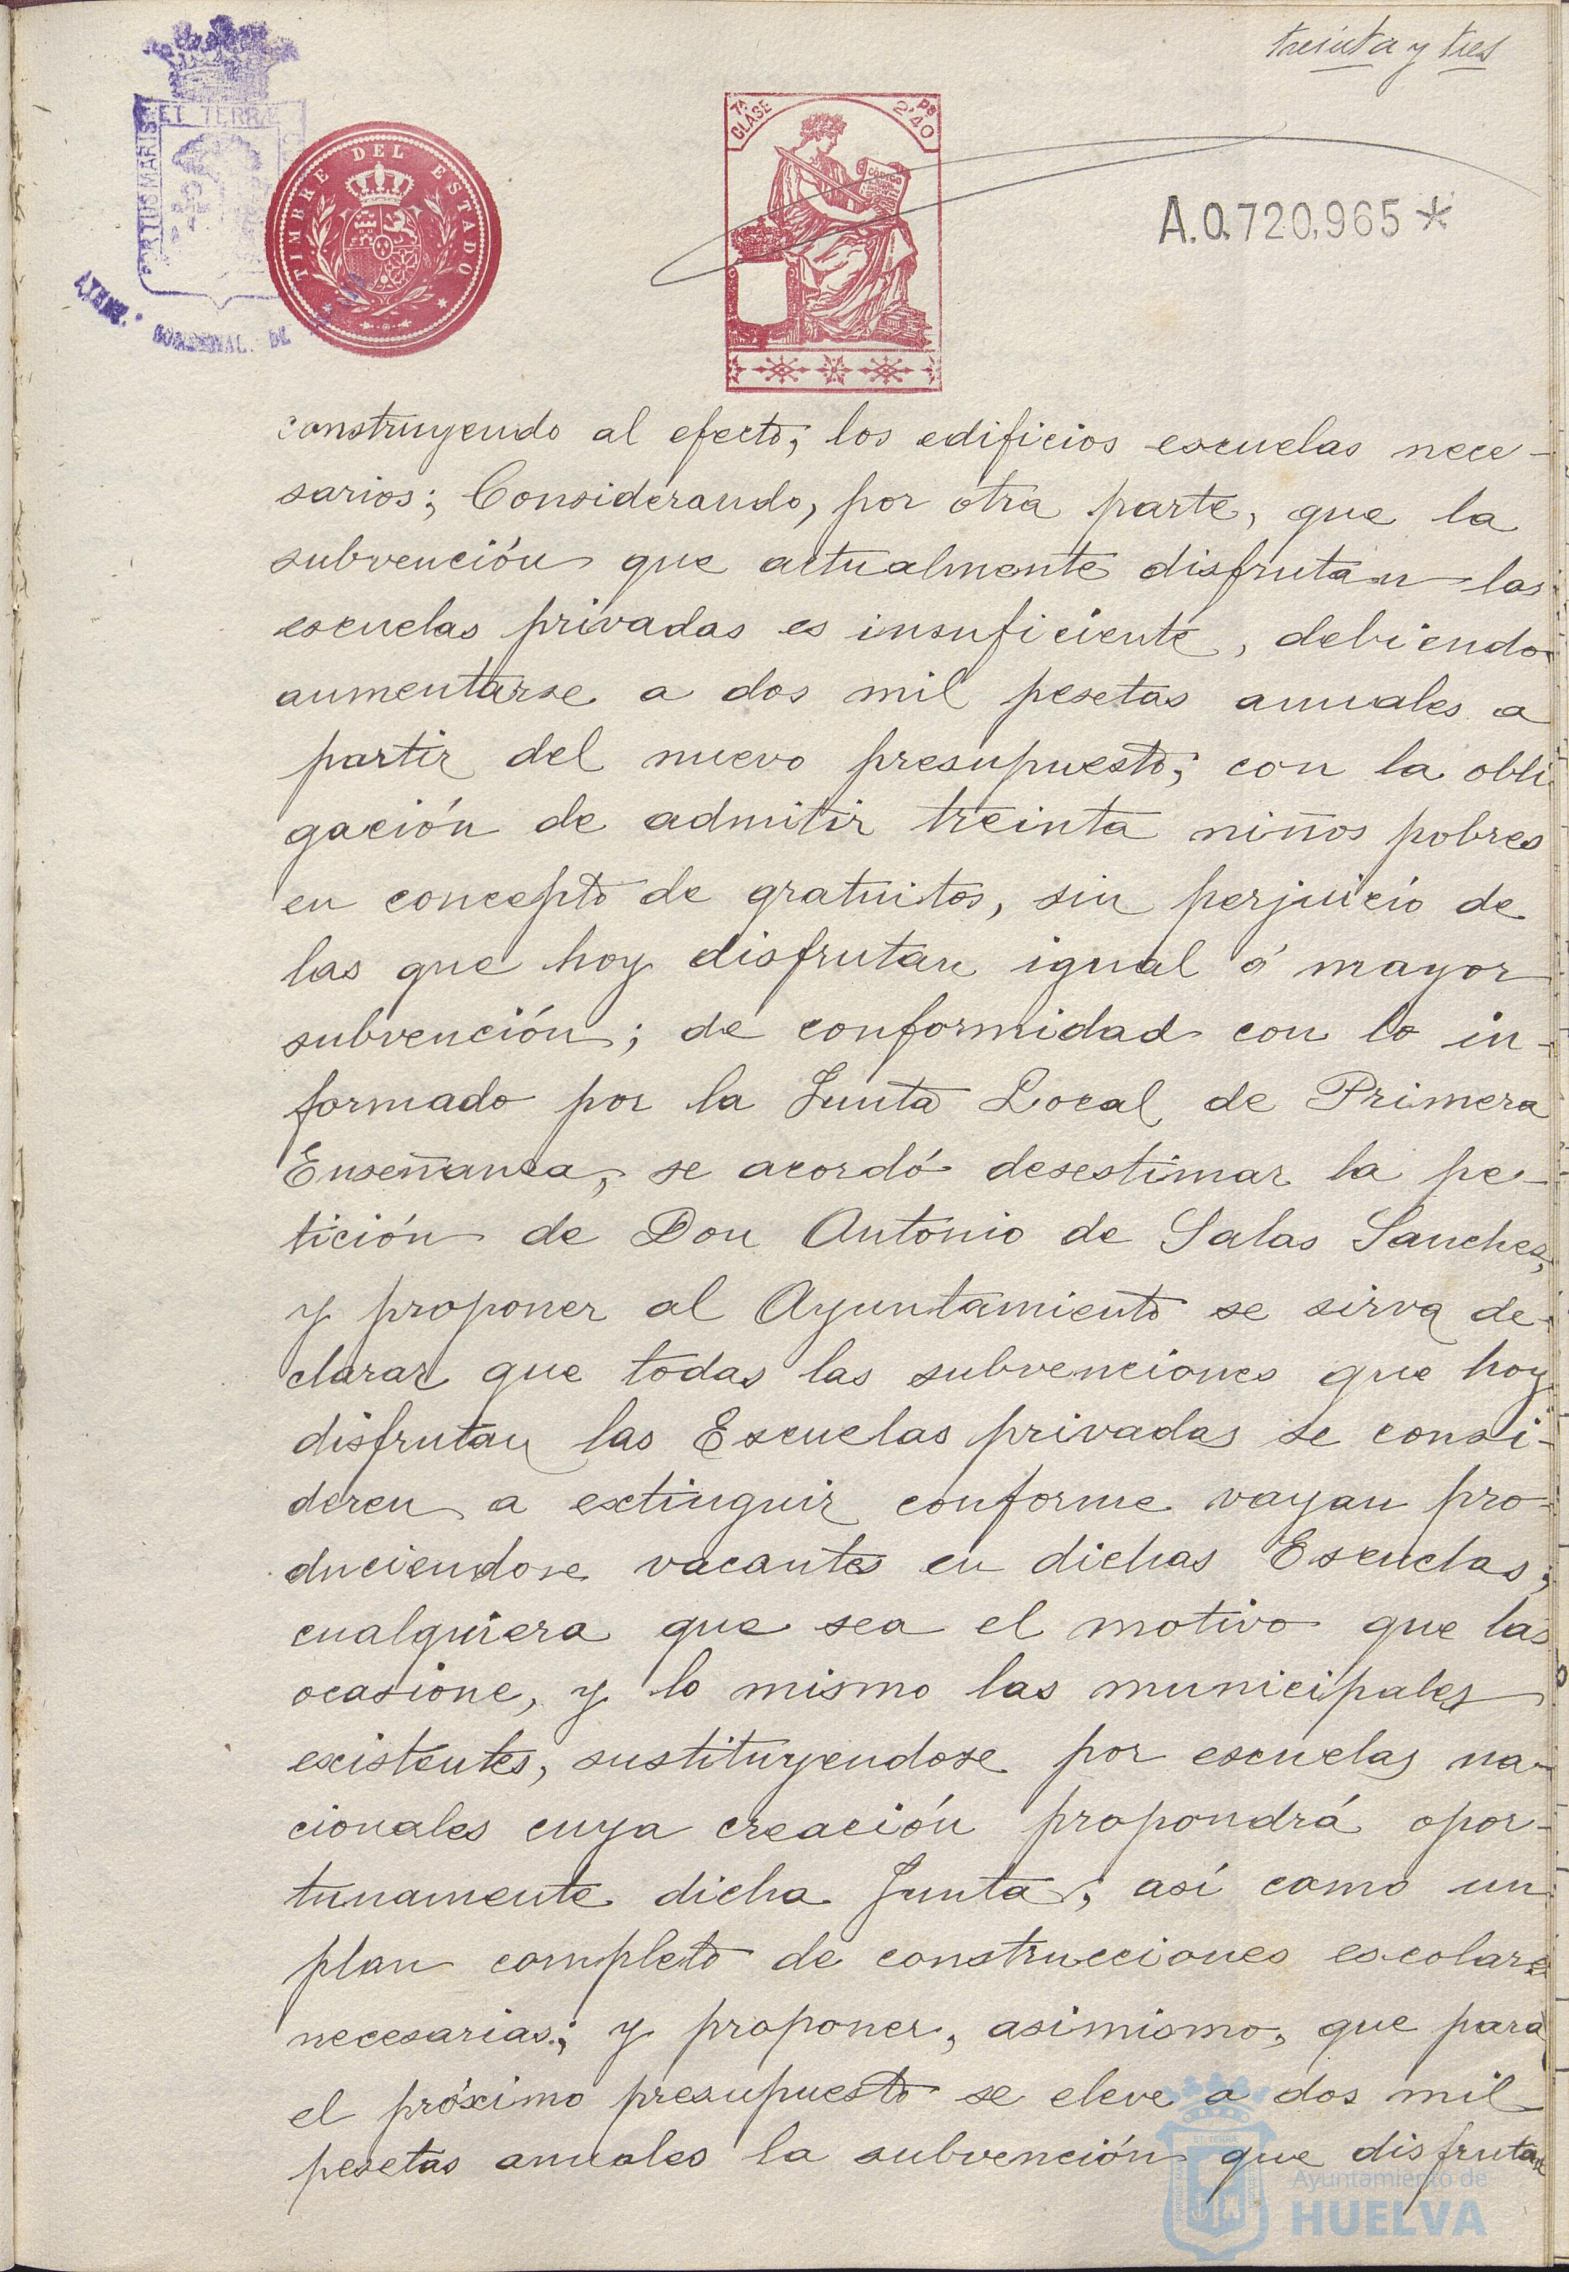 treinta y tres
ET TERRÆ
PORTUS MARIS
TIMBRE DEL ESTADO
7ª CLASE
2'40 Ps
CÓDIGO
A.0.720.965 *
AYUNT.
DE
construyendo al efecto, los edificios escuelas nece-
sarios; Considerando, por otra parte, que la
subvención que actualmente disfrutan las
escuelas privadas es insuficiente, debiendo
aumentarse a dos mil pesetas anuales a
partir del nuevo presupuesto; con la obli-
gación de admitir treinta niños pobres
en concepto de gratuitos, sin perjuicio de
las que hoy disfrutan igual ó mayor
subvención; de conformidad con lo in-
formado por la Junta Local de Primera
Enseñanza, se acordó desestimar la pe-
tición de Don Antonio de Salas Sanchez,
y proponer al Ayuntamiento se sirva de-
clarar que todas las subvenciones que hoy
disfrutan las Escuelas privadas se consi-
deren a extinguir conforme vayan pro-
duciendose vacantes en dichas Escuelas,
cualquiera que sea el motivo que las
ocasione, y lo mismo las municipales
existentes, sustituyendose por escuelas na-
cionales cuya creación propondrá opor-
tunamente dicha Junta, así como un
plan completo de construcciones escolares
necesarias; y proponer, asimismo, que para
el próximo presupuesto se eleve a dos mil
pesetas anuales la subvención que disfrutan
Ayuntamiento de
HUELVA